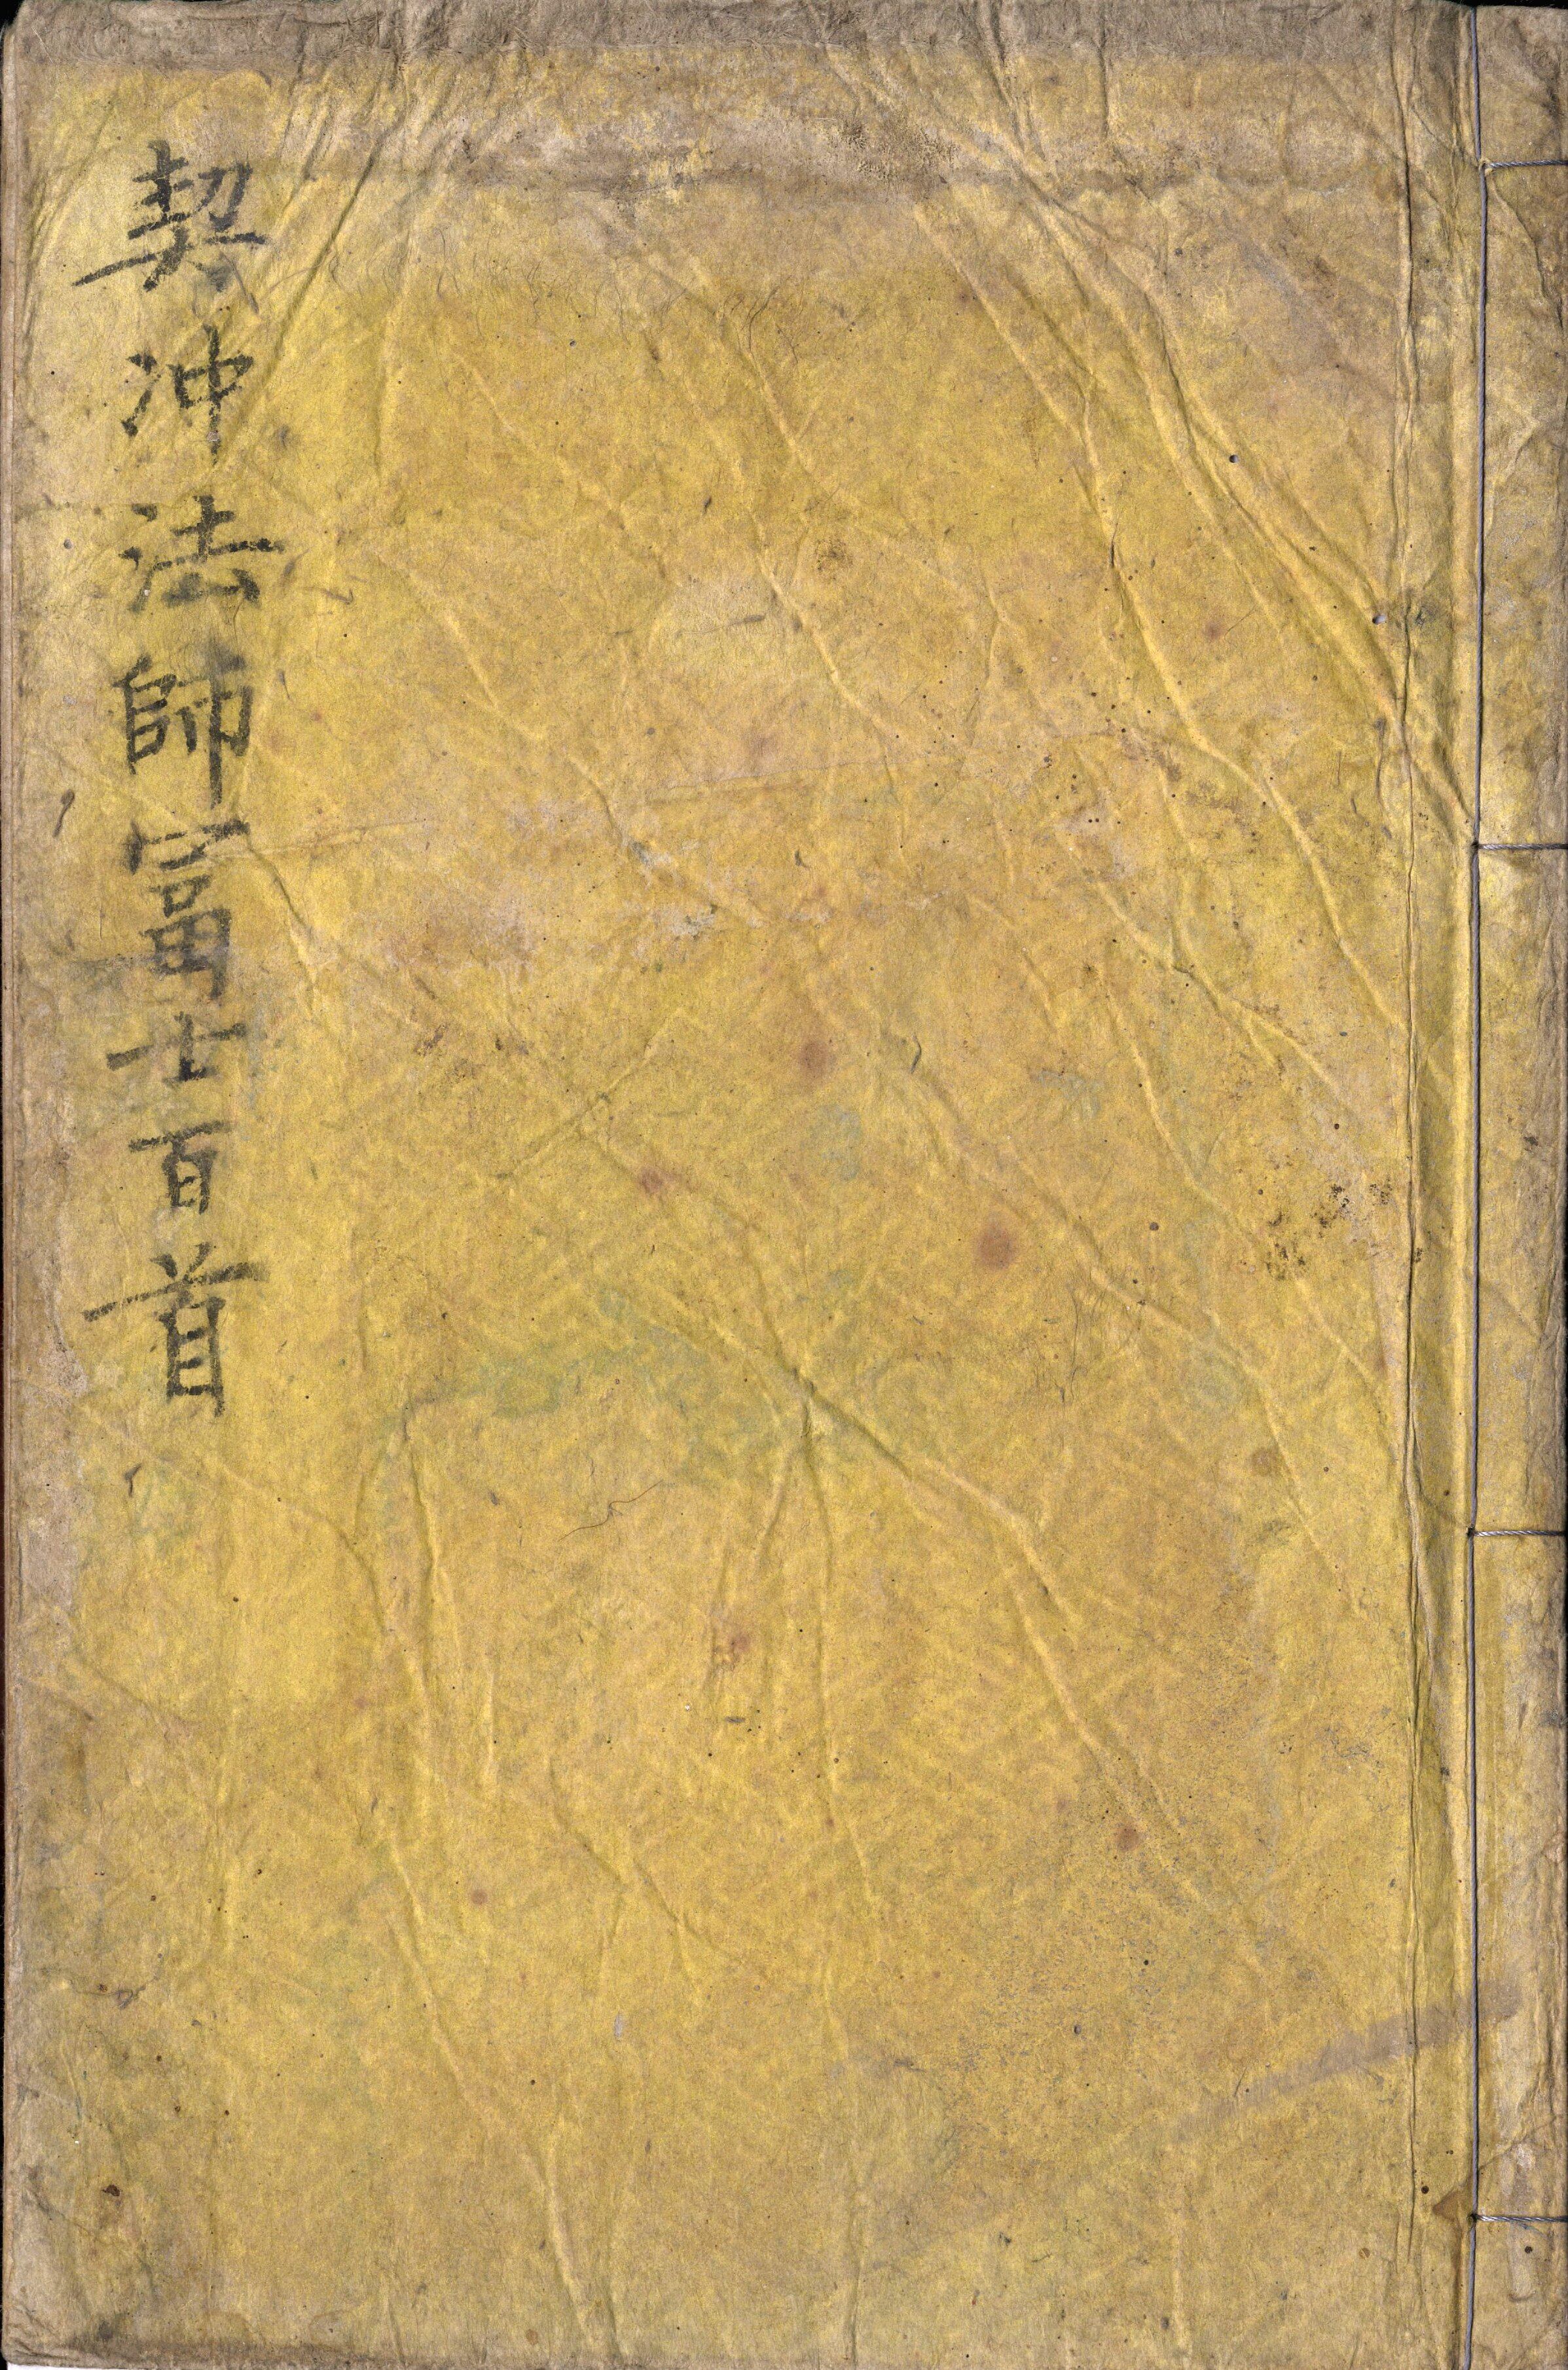 契冲法師富士百首